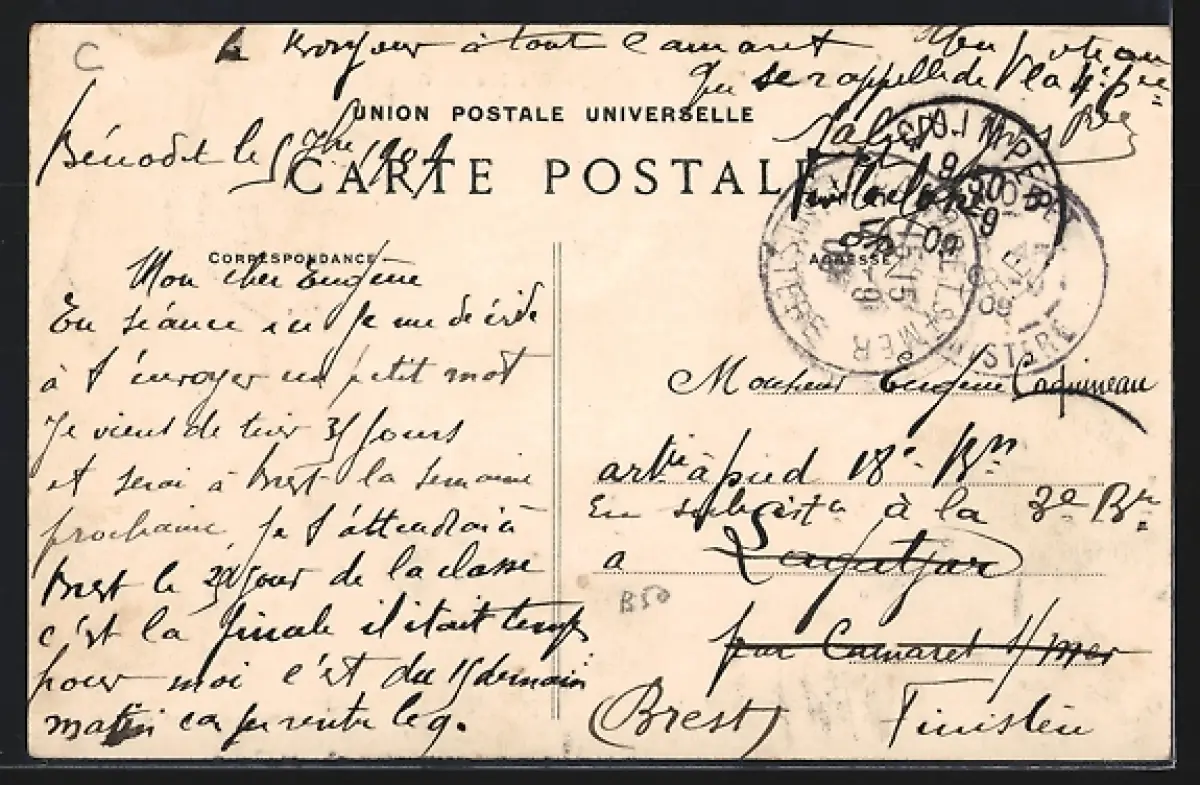 C
Le Bonjour à tout Camaret Mon poteau
Qui se rappelle de la 4e Bie
UNION POSTALE UNIVERSELLE
Bénodet le 5 7bre 1909
CARTE POSTALE
QUIMPER
CORRESPONDANCE
ADRESSE
FINISTERE
Mon cher Eugène
En séance ici je me décide
à t'envoyer un petit mot
Je viens de tirer jours
et serai à Brest la semaine
prochaine, je t'attendrai à
Brest le jour de la classe
c'est la finale il était temps
pour moi c'est du 15 demain
matin ca je rentre le 9.
Monsieur Eugène Caquineau
artie à pied 18e Bn
En subsistce à la 3e Bie
a Lagatjar
B50
par Camaret s/mer
(Brest) Finistère